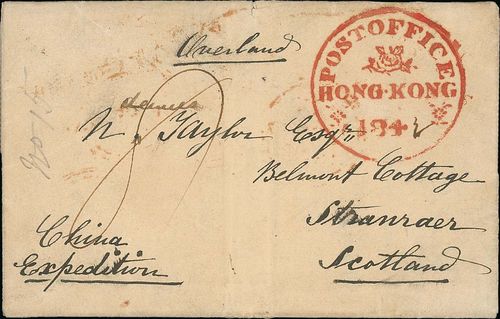 Overland
POST OFFICE
HONG·KONG
1842
No 15
N. Taylor Esqr
Belmont Cottage
Stranraer
Scotland
China
Expedition